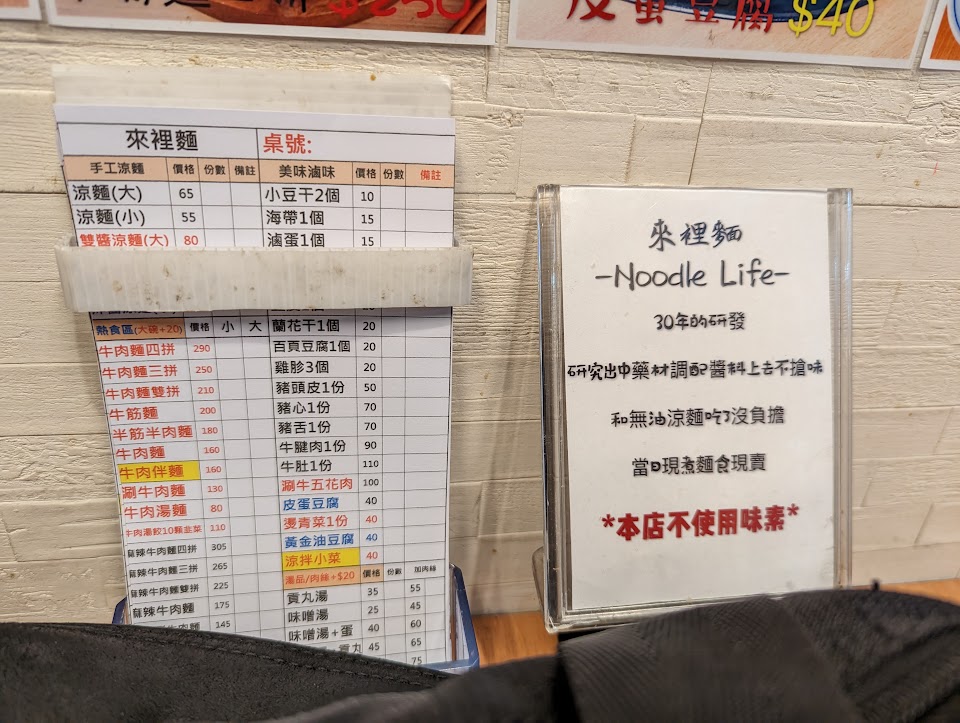 $250
皮蛋豆腐 $40
來裡麵 桌號:
手工涼麵 價格 份數 備註 美味滷味 價格 份數 備註
涼麵(大) 65 小豆干2個 10
涼麵(小) 55 海帶1個 15
雙醬涼麵(大) 80 滷蛋1個 15
20
熱食區(大碗+20) 價格 小 大 蘭花干1個 20
牛肉麵四拼 290 百頁豆腐1個 20
牛肉麵三拼 250 雞胗3個 20
牛肉麵雙拼 210 豬頭皮1份 50
牛筋麵 200 豬心1份 70
半筋半肉麵 180 豬舌1份 70
牛肉麵 160 牛腱肉1份 90
牛肉伴麵 160 牛肚1份 110
涮牛肉麵 130 涮牛五花肉 100
牛肉湯麵 80 皮蛋豆腐 40
牛肉湯餃10顆韭菜 110 燙青菜1份 40
麻辣牛肉麵四拼 305 黃金油豆腐 40
麻辣牛肉麵三拼 265 涼拌小菜 40
麻辣牛肉麵雙拼 225 湯品/肉絲+$20 價格 份數 加肉絲
麻辣牛肉麵 175 貢丸湯 35 55
145 味噌湯 25 45
味噌湯+蛋 40 60
45 65
75
來裡麵
-Noodle Life-
30年的研發
研究出中藥材調配醬料上去不搶味
和無油涼麵吃了沒負擔
當日現煮麵食現賣
*本店不使用味素*